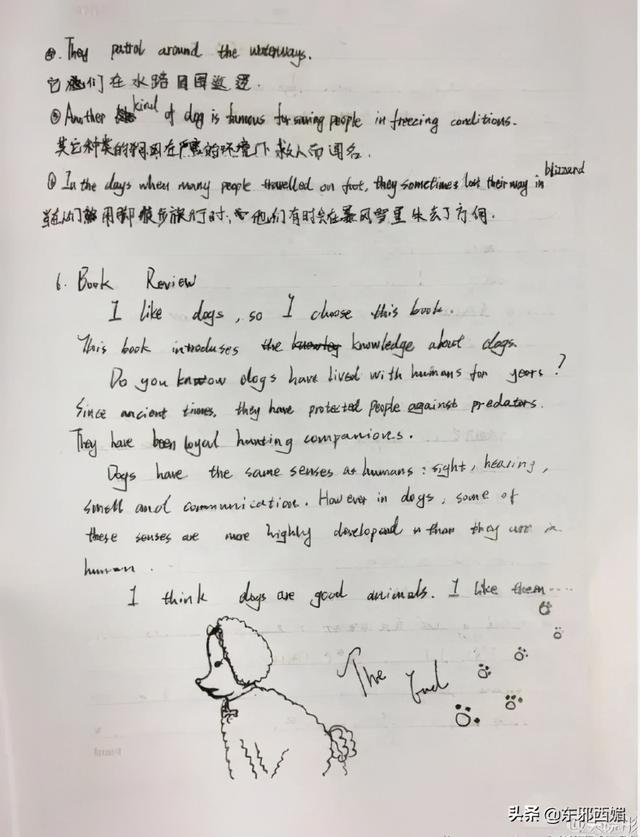 ④. They patrol around the waterways.
它们在水路周围巡逻.
⑤ Another kind of dog is famous for saving people in freezing conditions.
其它种类的狗因在严寒的环境下救人而闻名.
⑥ In the days when many people travelled on foot, they sometimes lost their way in blizzard
当人们用脚徒步旅行时, 他们有时会在暴风雪里失去了方向.
6. Book Review
I like dogs, so I choose this book.
This book introduses the knowledge about dogs.
Do you know dogs have lived with humans for years?
Since ancient times, they have protected people against predators.
They have been loyal hunting companions.
Dogs have the same senses as humans: sight, hearing,
smell and communication. However in dogs, some of
these senses are more highly developed than they are in
human.
I think dogs are good animals. I like them ....
The End
头条 @东邪西媚